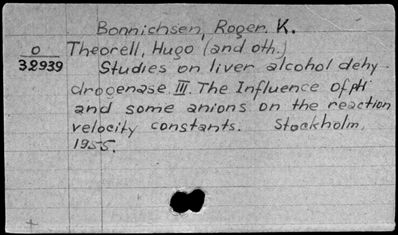 Bonnichsen, Roger K.
O Theorell, Hugo (and oth.)
32939 Studies on liver alcohol dehy-
drogenase. III. The Influence of pH
and some anions on the reaction
velocity constants. Stockholm,
1955.